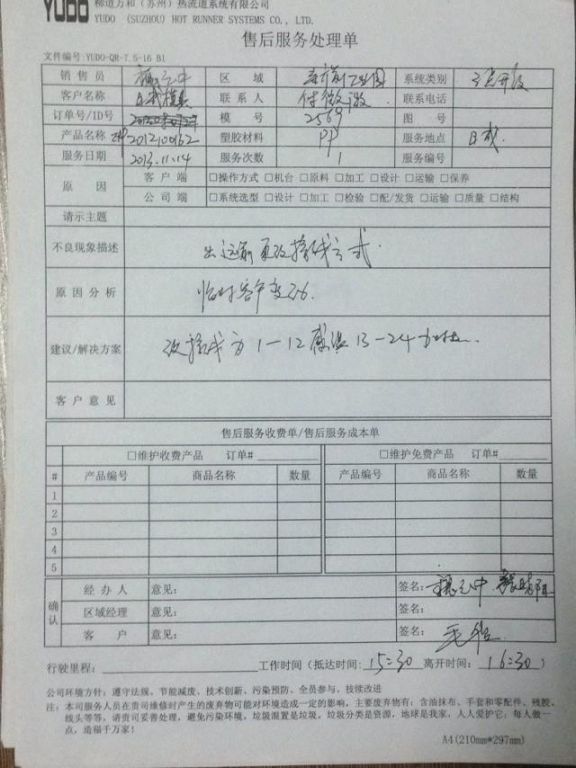 YUDO 柳道万和（苏州）热流道系统有限公司
YUDO (SUZHOU) HOT RUNNER SYSTEMS CO., LTD.
售后服务处理单
文件编号 YUDO-QR-7.5-16 B1
销售员 区域 系统类别
客户名称 联系人 联系电话
订单号/ID号 模号 2569 图号
产品名称 2012100162 塑胶材料 PP 服务地点
服务日期 2013.11.14 服务次数 1 服务编号
原因 客户端 □操作方式 □机台 □原料 □加工 □设计 □运输 □保养
公司端 □系统选型 □设计 □加工 □检验 □配/发货 □运输 □质量 □结构
请示主题
不良现象描述 出运前更改接线方式.
原因分析 临时客户变更.
建议/解决方案 改接线为1-12感温 13-24加热.
客户意见
售后服务收费单/售后服务成本单
□维护收费产品 订单# □维护免费产品 订单#
# 产品编号 商品名称 数量 产品编号 商品名称 数量
1
2
3
4
5
确认 经办人 意见: 签名:
区域经理 意见: 签名:
客户 意见: 签名:
行驶里程: 工作时间（抵达时间: 15:30 离开时间: 16:30）
公司环境方针: 遵守法规、节能减废、技术创新、污染预防、全员参与、持续改进
注: 本司服务人员在贵司维修时产生的废弃物可能对环境造成一定的影响，主要废弃物有: 含油抹布、手套和零配件、残胶、
线头等等，请贵司妥善处理，避免污染环境。垃圾混置是垃圾，垃圾分类是资源，地球是我家，人人爱护它; 每人做一
点，造福千万家!
A4(210mm*297mm)